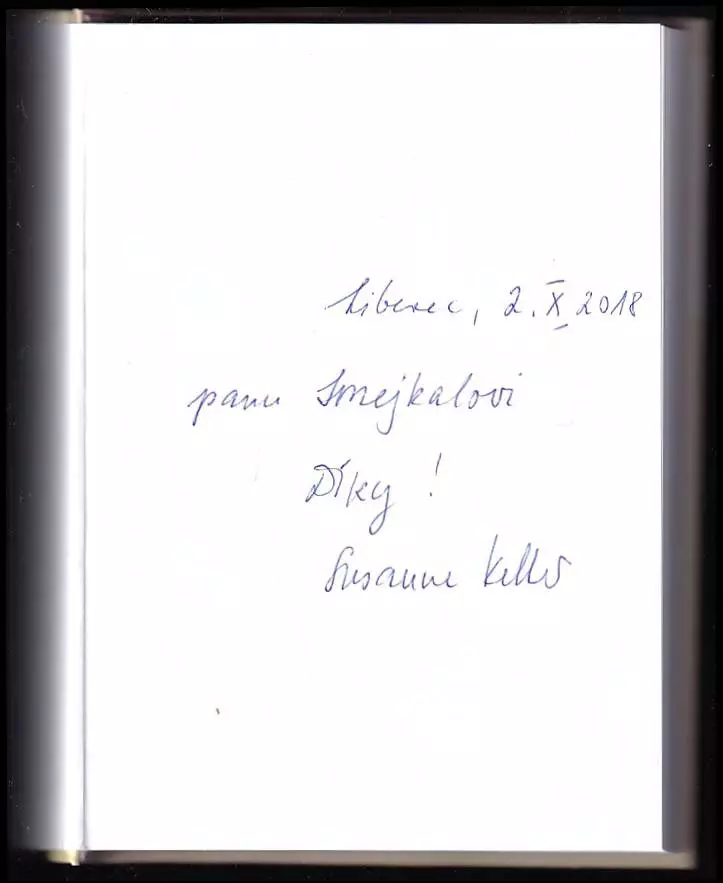 Liberec, 2. X 2018
panu Smejkalovi
Díky !
Susanne Keller